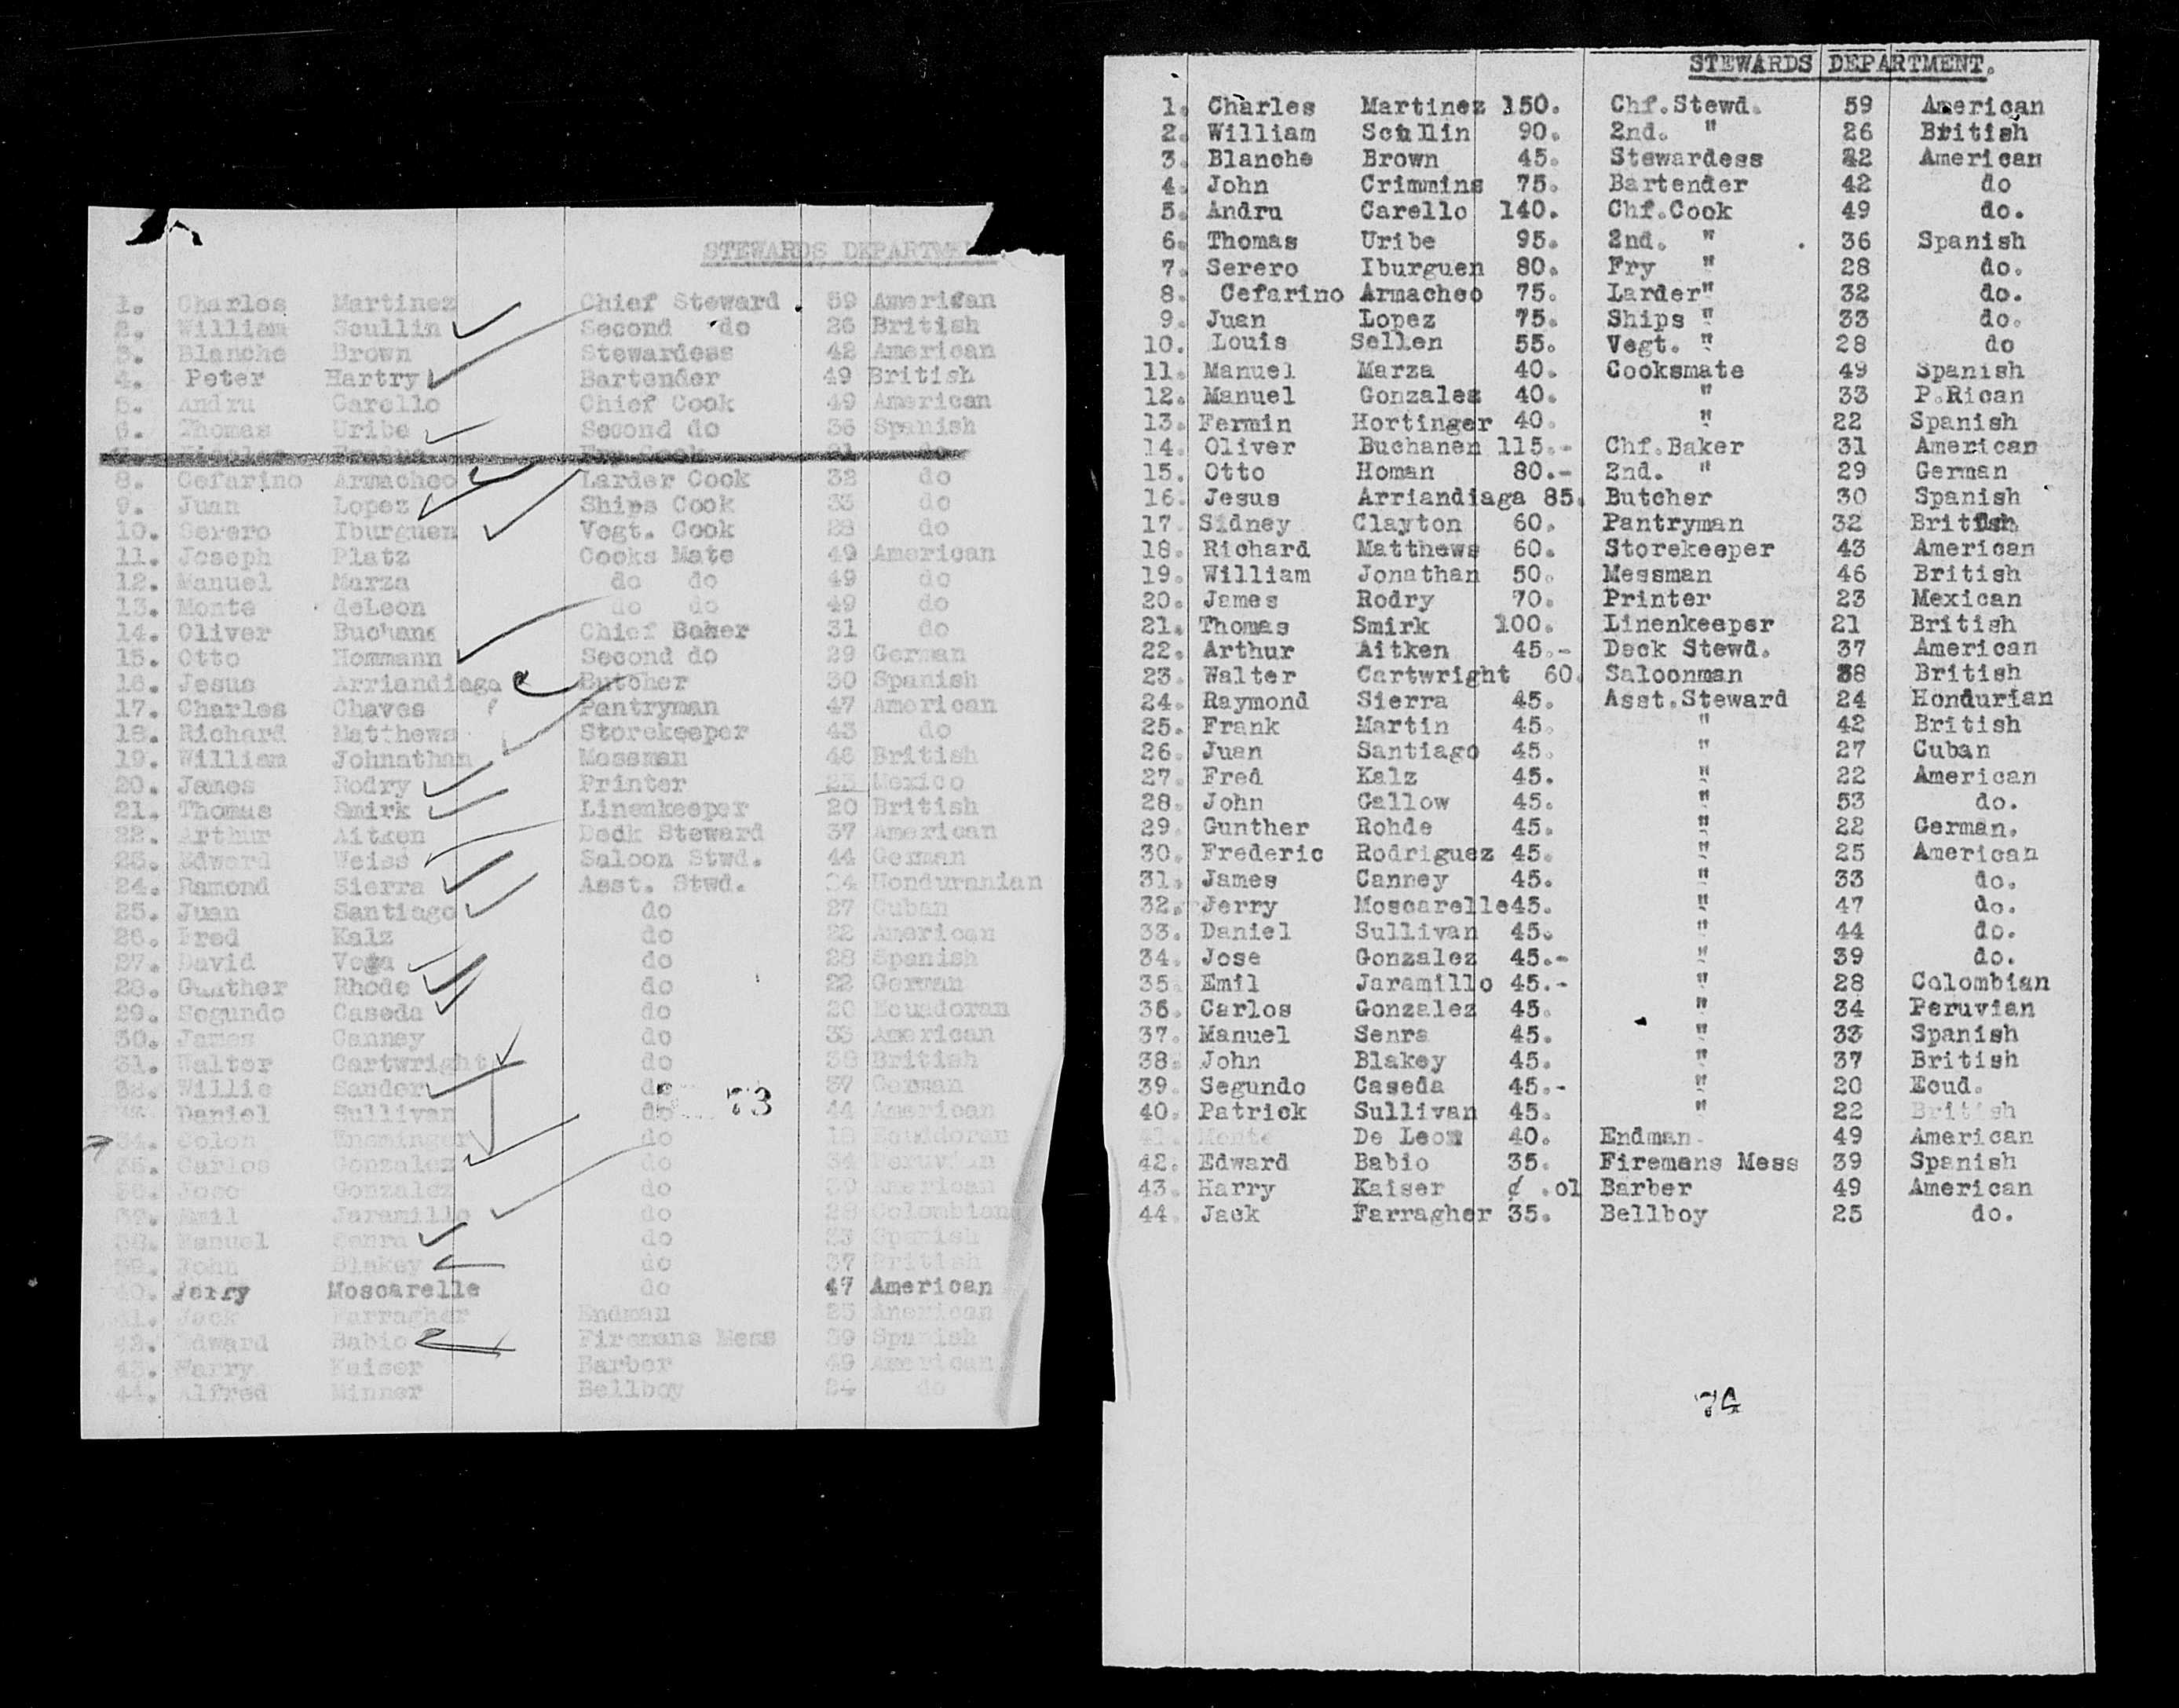 STEWARDS DEPARTME
1. Charles Martinez Chief Steward. 59 American
2. William Scullin Second do 26 British
3. Blanche Brown Stewardess 42 American
4. Peter Hartry Bartender 49 British
5. Andru Carello Chief Cook 49 American
6. Thomas Uribe Second do 36 Spanish
8. Cefarino Armacheo Larder Cook 32 do
9. Juan Lopez Ships Cook 33 do
10. Serero Iburguen Vegt. Cook 28 do
11. Joseph Platz Cooks Mate 49 American
12. Manuel Marza do do 49 do
13. Monte deLeon do do 49 do
14. Oliver Buchane Chief Baker 31 do
15. Otto Hommann Second do 29 German
16. Jesus Arriandiaga Butcher 30 Spanish
17. Charles Chaves Pantryman 47 American
18. Richard Matthews Storekeeper 43 do
19. William Johnathan Messman 46 British
20. James Rodry Printer 23 Mexico
21. Thomas Smirk Linenkeeper 20 British
22. Arthur Aitken Deck Steward 37 American
23. Edward Weiss Saloon Stwd. 44 German
24. Ramond Sierra Asst. Stwd. 24 Honduranian
25. Juan Santiago do 27 Cuban
26. Fred Kalz do 22 American
27. David Vega do 28 Spanish
28. Gunther Rhode do 22 German
29. Segundo Caseda do 20 Ecuadoran
30. James Canney do 33 American
31. Walter Cartwright do 38 British
32. Willie Sander do 37 German
73
33. Daniel Sullivan do 44 American
34. Colon Ensminger do 18 Ecuadoran
35. Carlos Gonzalez do 34 Peruvian
36. Jose Gonzalez do 39 American
37. Emil Jaramillo do 28 Colombian
38. Manuel Senra do 33 Spanish
39. John Blakey do 37 British
40. Jerry Moscarelle do 47 American
41. Jack Farragher Endman 25 American
42. Edward Babio Firemans Mess 39 Spanish
43. Harry Kaiser Barber 49 American
44. Alfred Minner Bellboy 24 do
STEWARDS DEPARTMENT.
1. Charles Martinez 150. Chf.Stewd. 59 American
2. William Scullin 90. 2nd. " 26 British
3. Blanche Brown 45. Stewardess 42 American
4. John Crimmins 75. Bartender 42 do
5. Andru Carello 140. Chf.Cook 49 do.
6. Thomas Uribe 95. 2nd. " 36 Spanish
7. Serero Iburguen 80. Fry " 28 do.
8. Cefarino Armacheo 75. Larder" 32 do.
9. Juan Lopez 75. Ships " 33 do.
10. Louis Sellen 55. Vegt. " 28 do
11. Manuel Marza 40. Cooksmate 49 Spanish
12. Manuel Gonzalez 40. " 33 P.Rican
13. Fermin Hortinger 40. " 22 Spanish
14. Oliver Buchanen 115.- Chf.Baker 31 American
15. Otto Homan 80.- 2nd. " 29 German
16. Jesus Arriandiaga 85. Butcher 30 Spanish
17. Sidney Clayton 60. Pantryman 32 British
18. Richard Matthews 60. Storekeeper 43 American
19. William Jonathan 50. Messman 46 British
20. James Rodry 70. Printer 23 Mexican
21. Thomas Smirk 100. Linenkeeper 21 British
22. Arthur Aitken 45.- Deck Stewd. 37 American
23. Walter Cartwright 60. Saloonman 38 British
24. Raymond Sierra 45. Asst.Steward 24 Hondurian
25. Frank Martin 45. " 42 British
26. Juan Santiago 45. " 27 Cuban
27. Fred Kalz 45. " 22 American
28. John Gallow 45. " 53 do.
29. Gunther Rohde 45. " 22 German.
30. Frederic Rodriguez 45. " 25 American
31. James Canney 45. " 33 do.
32. Jerry Moscarelle45. " 47 do.
33. Daniel Sullivan 45. " 44 do.
34. Jose Gonzalez 45.- " 39 do.
35. Emil Jaramillo 45.- " 28 Colombian
36. Carlos Gonzalez 45. " 34 Peruvian
37. Manuel Senra 45. " 33 Spanish
38. John Blakey 45. " 37 British
39. Segundo Caseda 45.- " 20 Ecud.
40. Patrick Sullivan 45. " 22 British
41. Monte De Leon 40. Endman 49 American
42. Edward Babio 35. Firemans Mess 39 Spanish
43. Harry Kaiser ¢ .01 Barber 49 American
44. Jack Farragher 35. Bellboy 25 do.
74